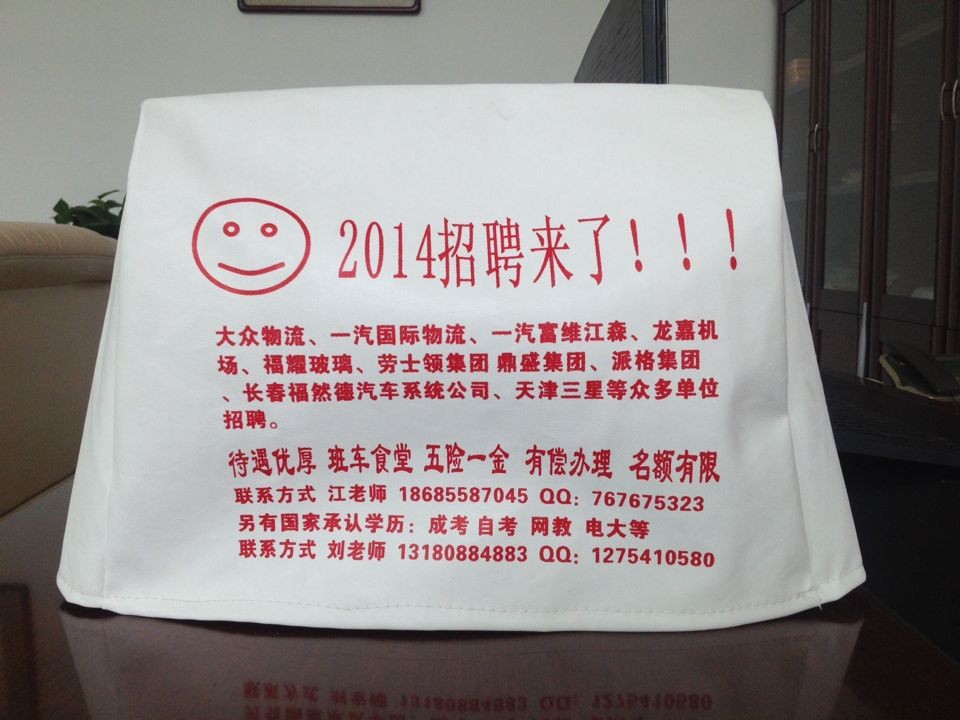 2014招聘来了！！！
大众物流、一汽国际物流、一汽富维江森、龙嘉机
场、福耀玻璃、劳士领集团 鼎盛集团、派格集团
、长春福然德汽车系统公司、天津三星等众多单位
招聘。
待遇优厚 班车食堂 五险一金 有偿办理 名额有限
联系方式 江老师 18685587045 QQ：767675323
另有国家承认学历：成考 自考 网教 电大等
联系方式 刘老师 13180884883 QQ：1275410580